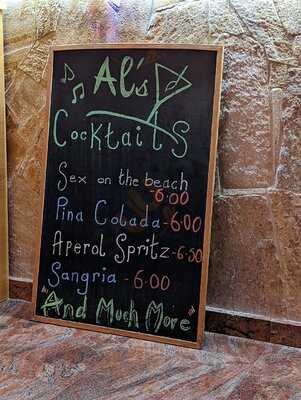 Al's
Cocktails
Sex on the beach
-6.00
Pina Colada-6.00
Aperol Spritz-6.50
Sangria -6.00
And Much More